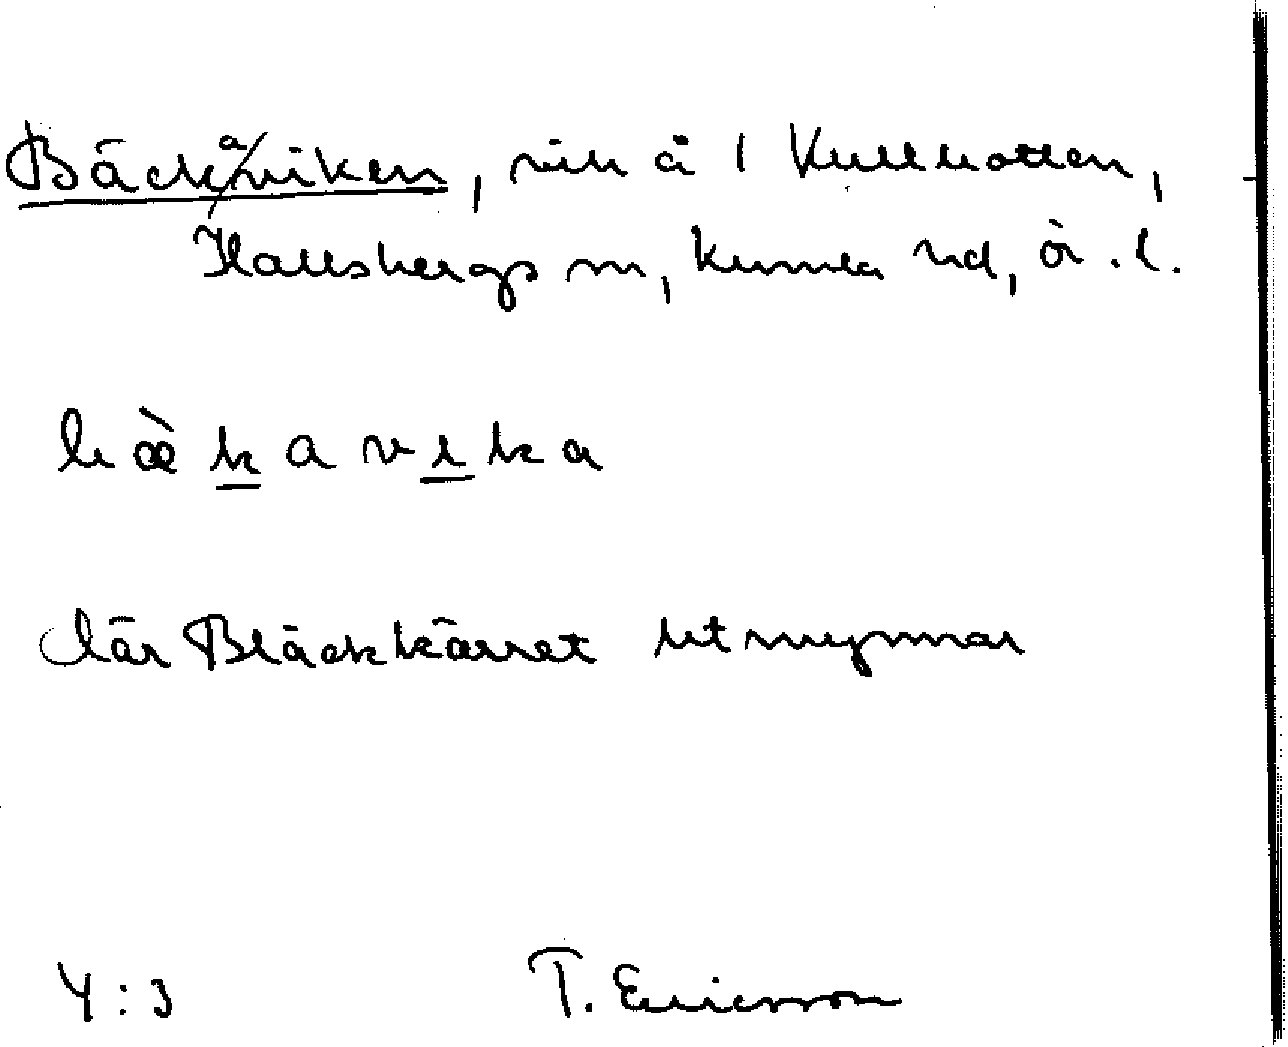 Bäckaviken, vik å 1 Kullbotten,
Hallsbergs sn, Kumla hd, ör. l.
bæ̀kavika
där Bläckkärret utmynnar
4:3 T. Ericsson